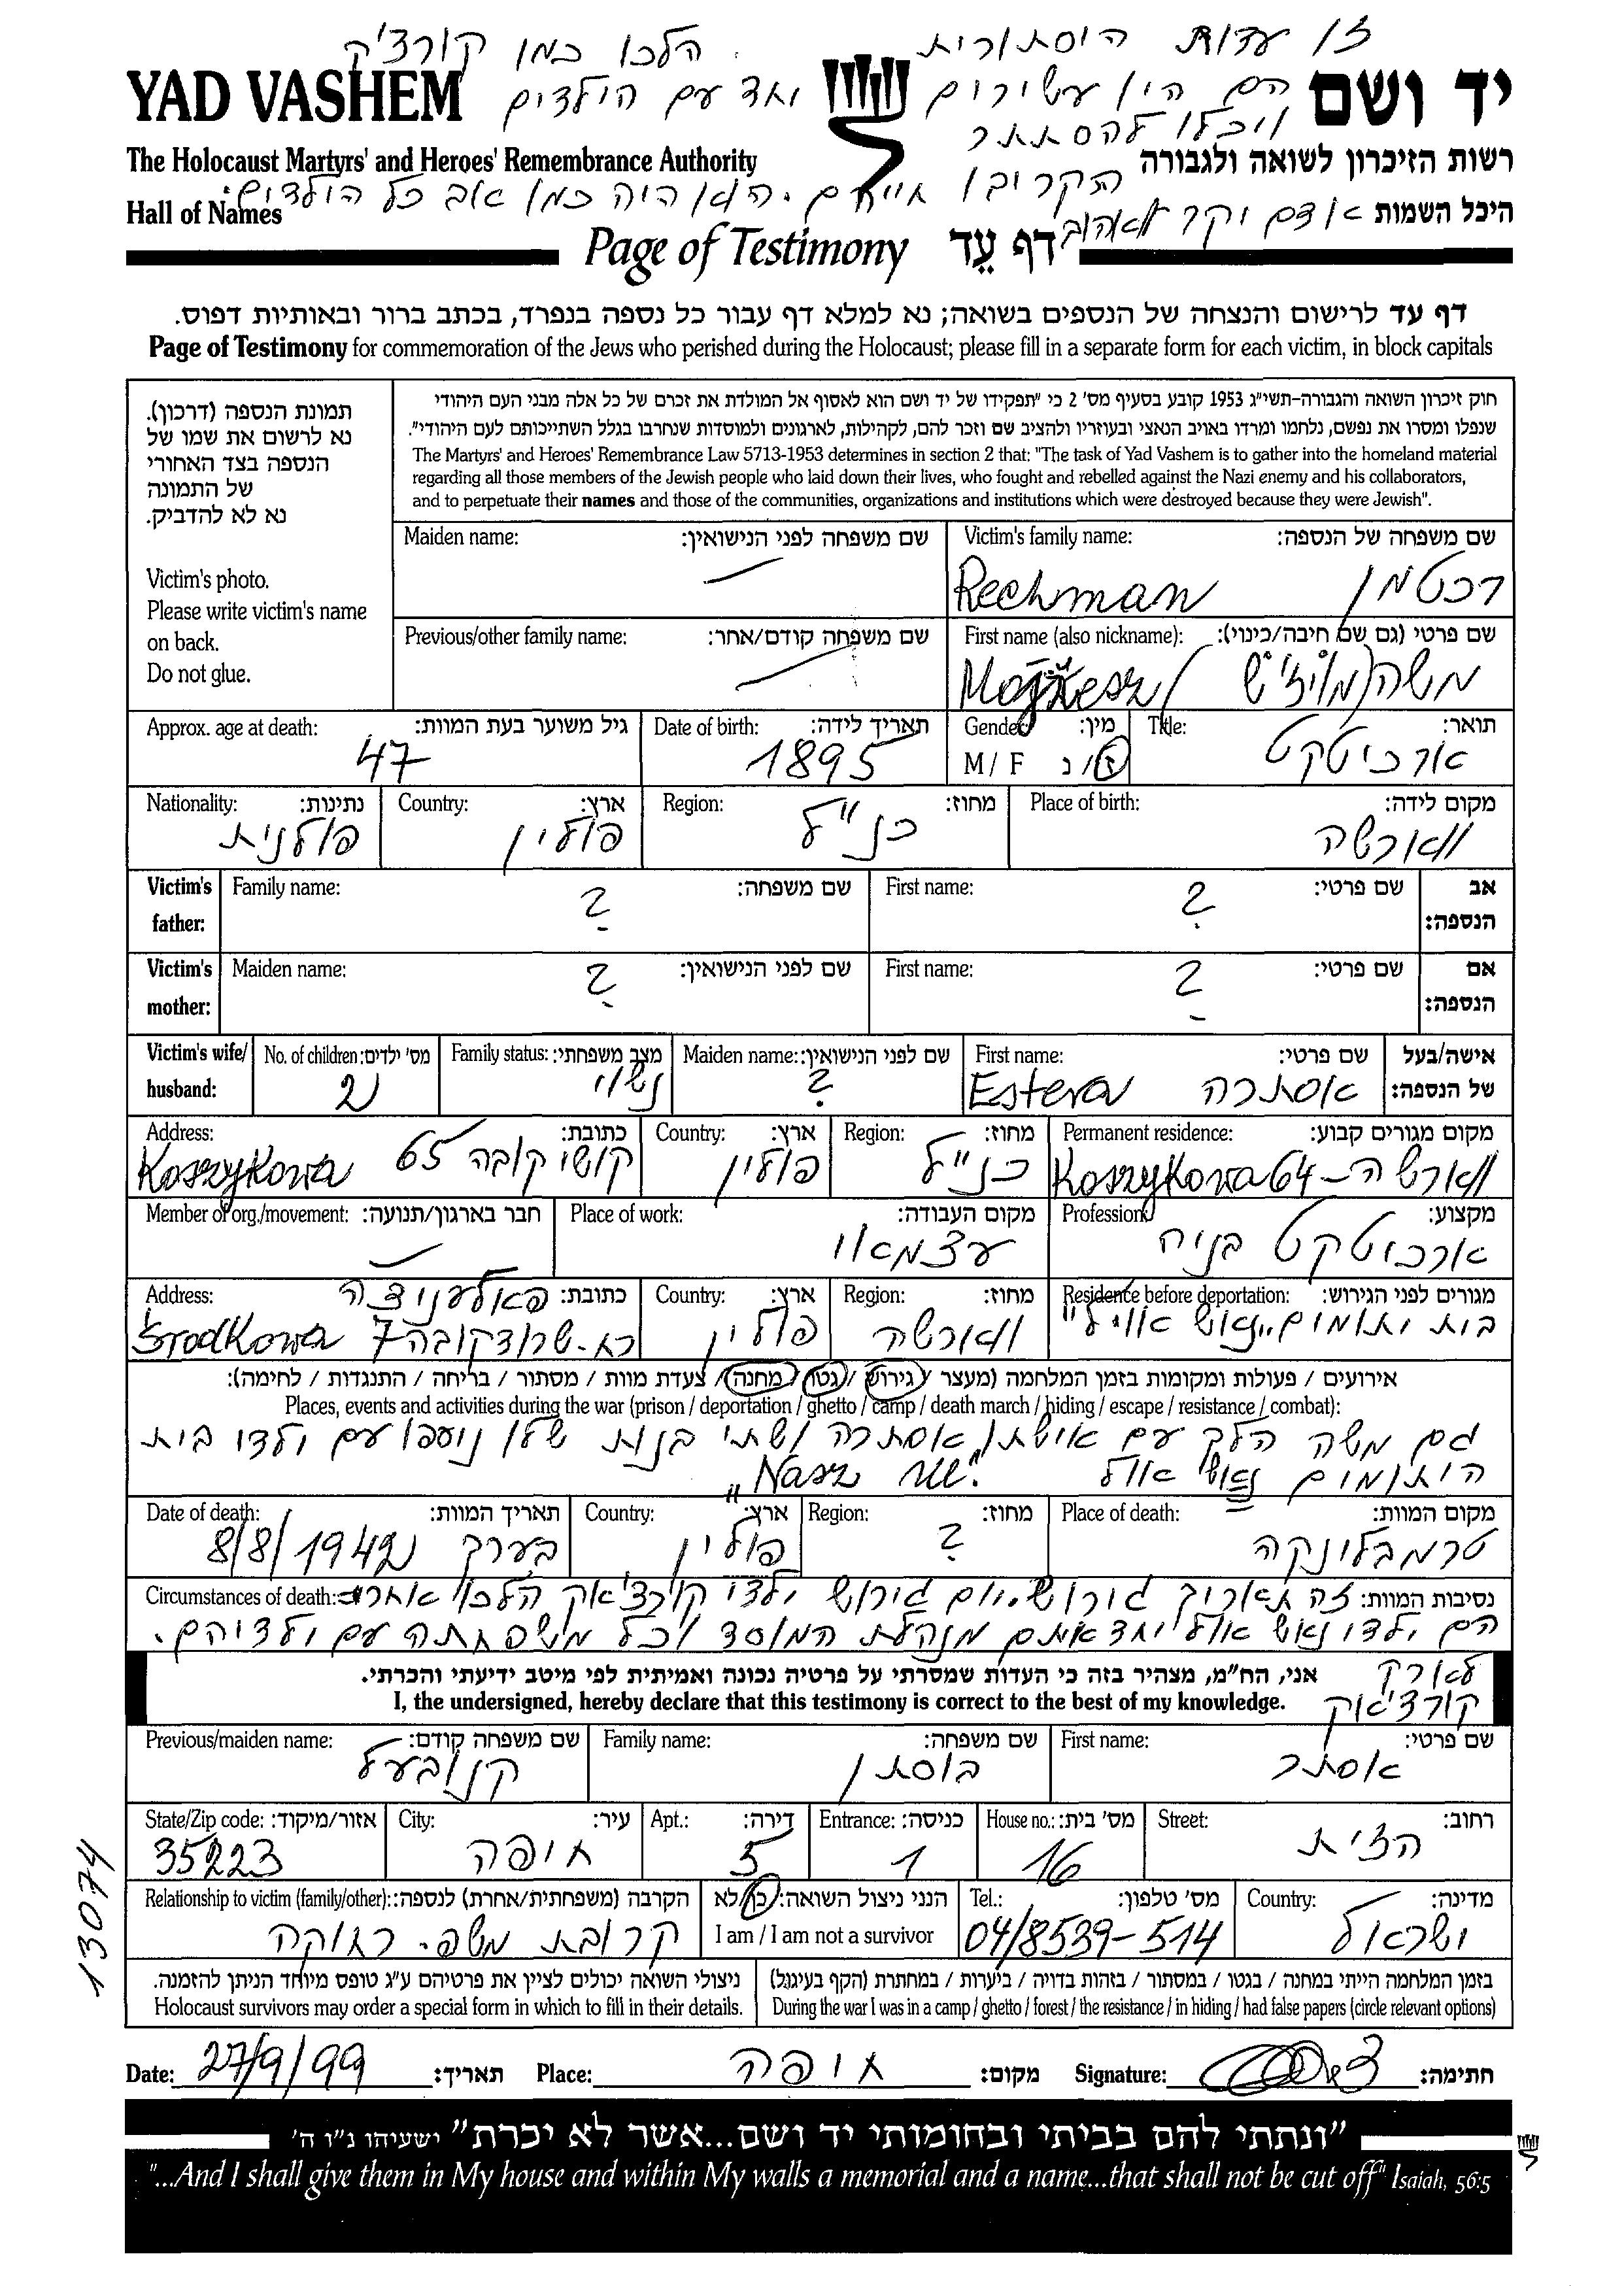 זו עדות היסטורית. הלכו כמו קורצ'ק
YAD VASHEM
הם היו עשירים
יחד עם הילדים
יד ושם
ויכלו להסתתר
The Holocaust Martyrs' and Heroes' Remembrance Authority
רשות הזיכרון לשואה ולגבורה
הקריבו חייהם. הוא היה כמו אב כל הילדים.
Hall of Names
היכל השמות
אדם יקר ואהוב
Page of Testimony דף עֵד
דף עד לרישום והנצחה של הנספים בשואה; נא למלא דף עבור כל נספה בנפרד, בכתב ברור ובאותיות דפוס.
Page of Testimony for commemoration of the Jews who perished during the Holocaust; please fill in a separate form for each victim, in block capitals
תמונת הנספה (דרכון).
נא לרשום את שמו של
הנספה בצד האחורי
של התמונה
נא לא להדביק.
Victim's photo.
Please write victim's name
on back.
Do not glue.
חוק זיכרון השואה והגבורה-תשי"ג 1953 קובע בסעיף מס' 2 כי "תפקידו של יד ושם הוא לאסוף אל המולדת את זכרם של כל אלה מבני העם היהודי
שנפלו ומסרו את נפשם, נלחמו ומרדו באויב הנאצי ובעוזריו ולהציב שם וזכר להם, לקהילות, לארגונים ולמוסדות שנחרבו בגלל השתייכותם לעם היהודי".
The Martyrs' and Heroes' Remembrance Law 5713-1953 determines in section 2 that: "The task of Yad Vashem is to gather into the homeland material
regarding all those members of the Jewish people who laid down their lives, who fought and rebelled against the Nazi enemy and his collaborators,
and to perpetuate their names and those of the communities, organizations and institutions which were destroyed because they were Jewish".
Maiden name: שם משפחה לפני הנישואין:
Victim's family name: שם משפחה של הנספה:
Rechman רכטמן
Previous/other family name: שם משפחה קודם/אחר:
First name (also nickname): שם פרטי (גם שם חיבה/כינוי):
Mojżesz משה (מוז'ש)
Approx. age at death: גיל משוער בעת המוות:
47
Date of birth: תאריך לידה:
1895
Gender: מין:
M / F ז/נ
Title: תואר:
ארכיטקט
Nationality: נתינות:
פולנית
Country: ארץ:
פולין
Region: מחוז:
כנ"ל
Place of birth: מקום לידה:
ווארשה
Victim's father: Family name: שם משפחה:
?
First name: שם פרטי:
?
אב הנספה:
Victim's mother: Maiden name: שם לפני הנישואין:
?
First name: שם פרטי:
?
אם הנספה:
Victim's wife/ husband:
No. of children: מס' ילדים:
2
Family status: מצב משפחתי:
נשוי
Maiden name: שם לפני הנישואין:
?
First name: שם פרטי:
Estera אסתרה
אישה/בעל של הנספה:
Address: כתובת:
Koszykowa 65 קושיקובה
Country: ארץ:
פולין
Region: מחוז:
כנ"ל
Permanent residence: מקום מגורים קבוע:
ווארשה - Koszykowa 64
Member of org./movement: חבר בארגון/תנועה:
Place of work: מקום העבודה:
עצמאי
Profession: מקצוע:
ארכיטקט בניה
Address: כתובת:
פאלעניצה
Środkowa רח. שרודקובה 7
Country: ארץ:
פולין
Region: מחוז:
ווארשה
Residence before deportation: מגורים לפני הגירוש:
בית יתומים "נאש אוויל"
אירועים / פעולות ומקומות בזמן המלחמה (מעצר / גירוש / גטו / מחנה / צעדת מוות / מסתור / בריחה / התנגדות / לחימה):
Places, events and activities during the war (prison / deportation / ghetto / camp / death march / hiding / escape / resistance / combat):
גם משה הלך עם אישתו אסתרה ושתי בנות שלו ניספו עם ילדי בית
היתומים נאש אול "Nasz
Date of death: תאריך המוות:
8/8/1942 בערך
Country: ארץ:
פולין
Region: מחוז:
?
Place of death: מקום המוות:
טרמבלינקה
Circumstances of death: נסיבות המוות:
זה תאריך גירוש. יום גירוש ילדי קורצ'אק הלכו אחר
הם ילדי נאש אול יחד איתם מנהלת המוסד וכל משפחתה עם ילדיהם.
לארק
קורצ'אק
אני, הח"מ, מצהיר בזה כי העדות שמסרתי על פרטיה נכונה ואמיתית לפי מיטב ידיעתי והכרתי.
I, the undersigned, hereby declare that this testimony is correct to the best of my knowledge.
Previous/maiden name: שם משפחה קודם:
קנובעל
Family name: שם משפחה:
בוסתן
First name: שם פרטי:
אסתר
State/Zip code: אזור/מיקוד:
35223
City: עיר:
חיפה
Apt.: דירה:
5
Entrance: כניסה:
1
House no.: מס' בית:
16
Street: רחוב:
הזית
Relationship to victim (family/other): הקרבה (משפחתית/אחרת) לנספה:
קרובת משפ. רחוקה
הנני ניצול השואה: כן/לא
I am / I am not a survivor
Tel.: מס' טלפון:
04/8539-514
Country: מדינה:
ישראל
ניצולי השואה יכולים לציין את פרטיהם ע"ג טופס מיוחד הניתן להזמנה.
Holocaust survivors may order a special form in which to fill in their details.
בזמן המלחמה הייתי במחנה / בגטו / במסתור / בזהות בדויה / ביערות / במחתרת (הקף בעיגול)
During the war I was in a camp / ghetto / forest / the resistance / in hiding / had false papers (circle relevant options)
13074
Date: 27/9/99 תאריך: Place: חיפה מקום: Signature: חתימה:
"ונתתי להם בביתי ובחומותי יד ושם...אשר לא יכרת" ישעיהו נ"ו ה'
"...And I shall give them in My house and within My walls a memorial and a name...that shall not be cut off" Isaiah, 56:5